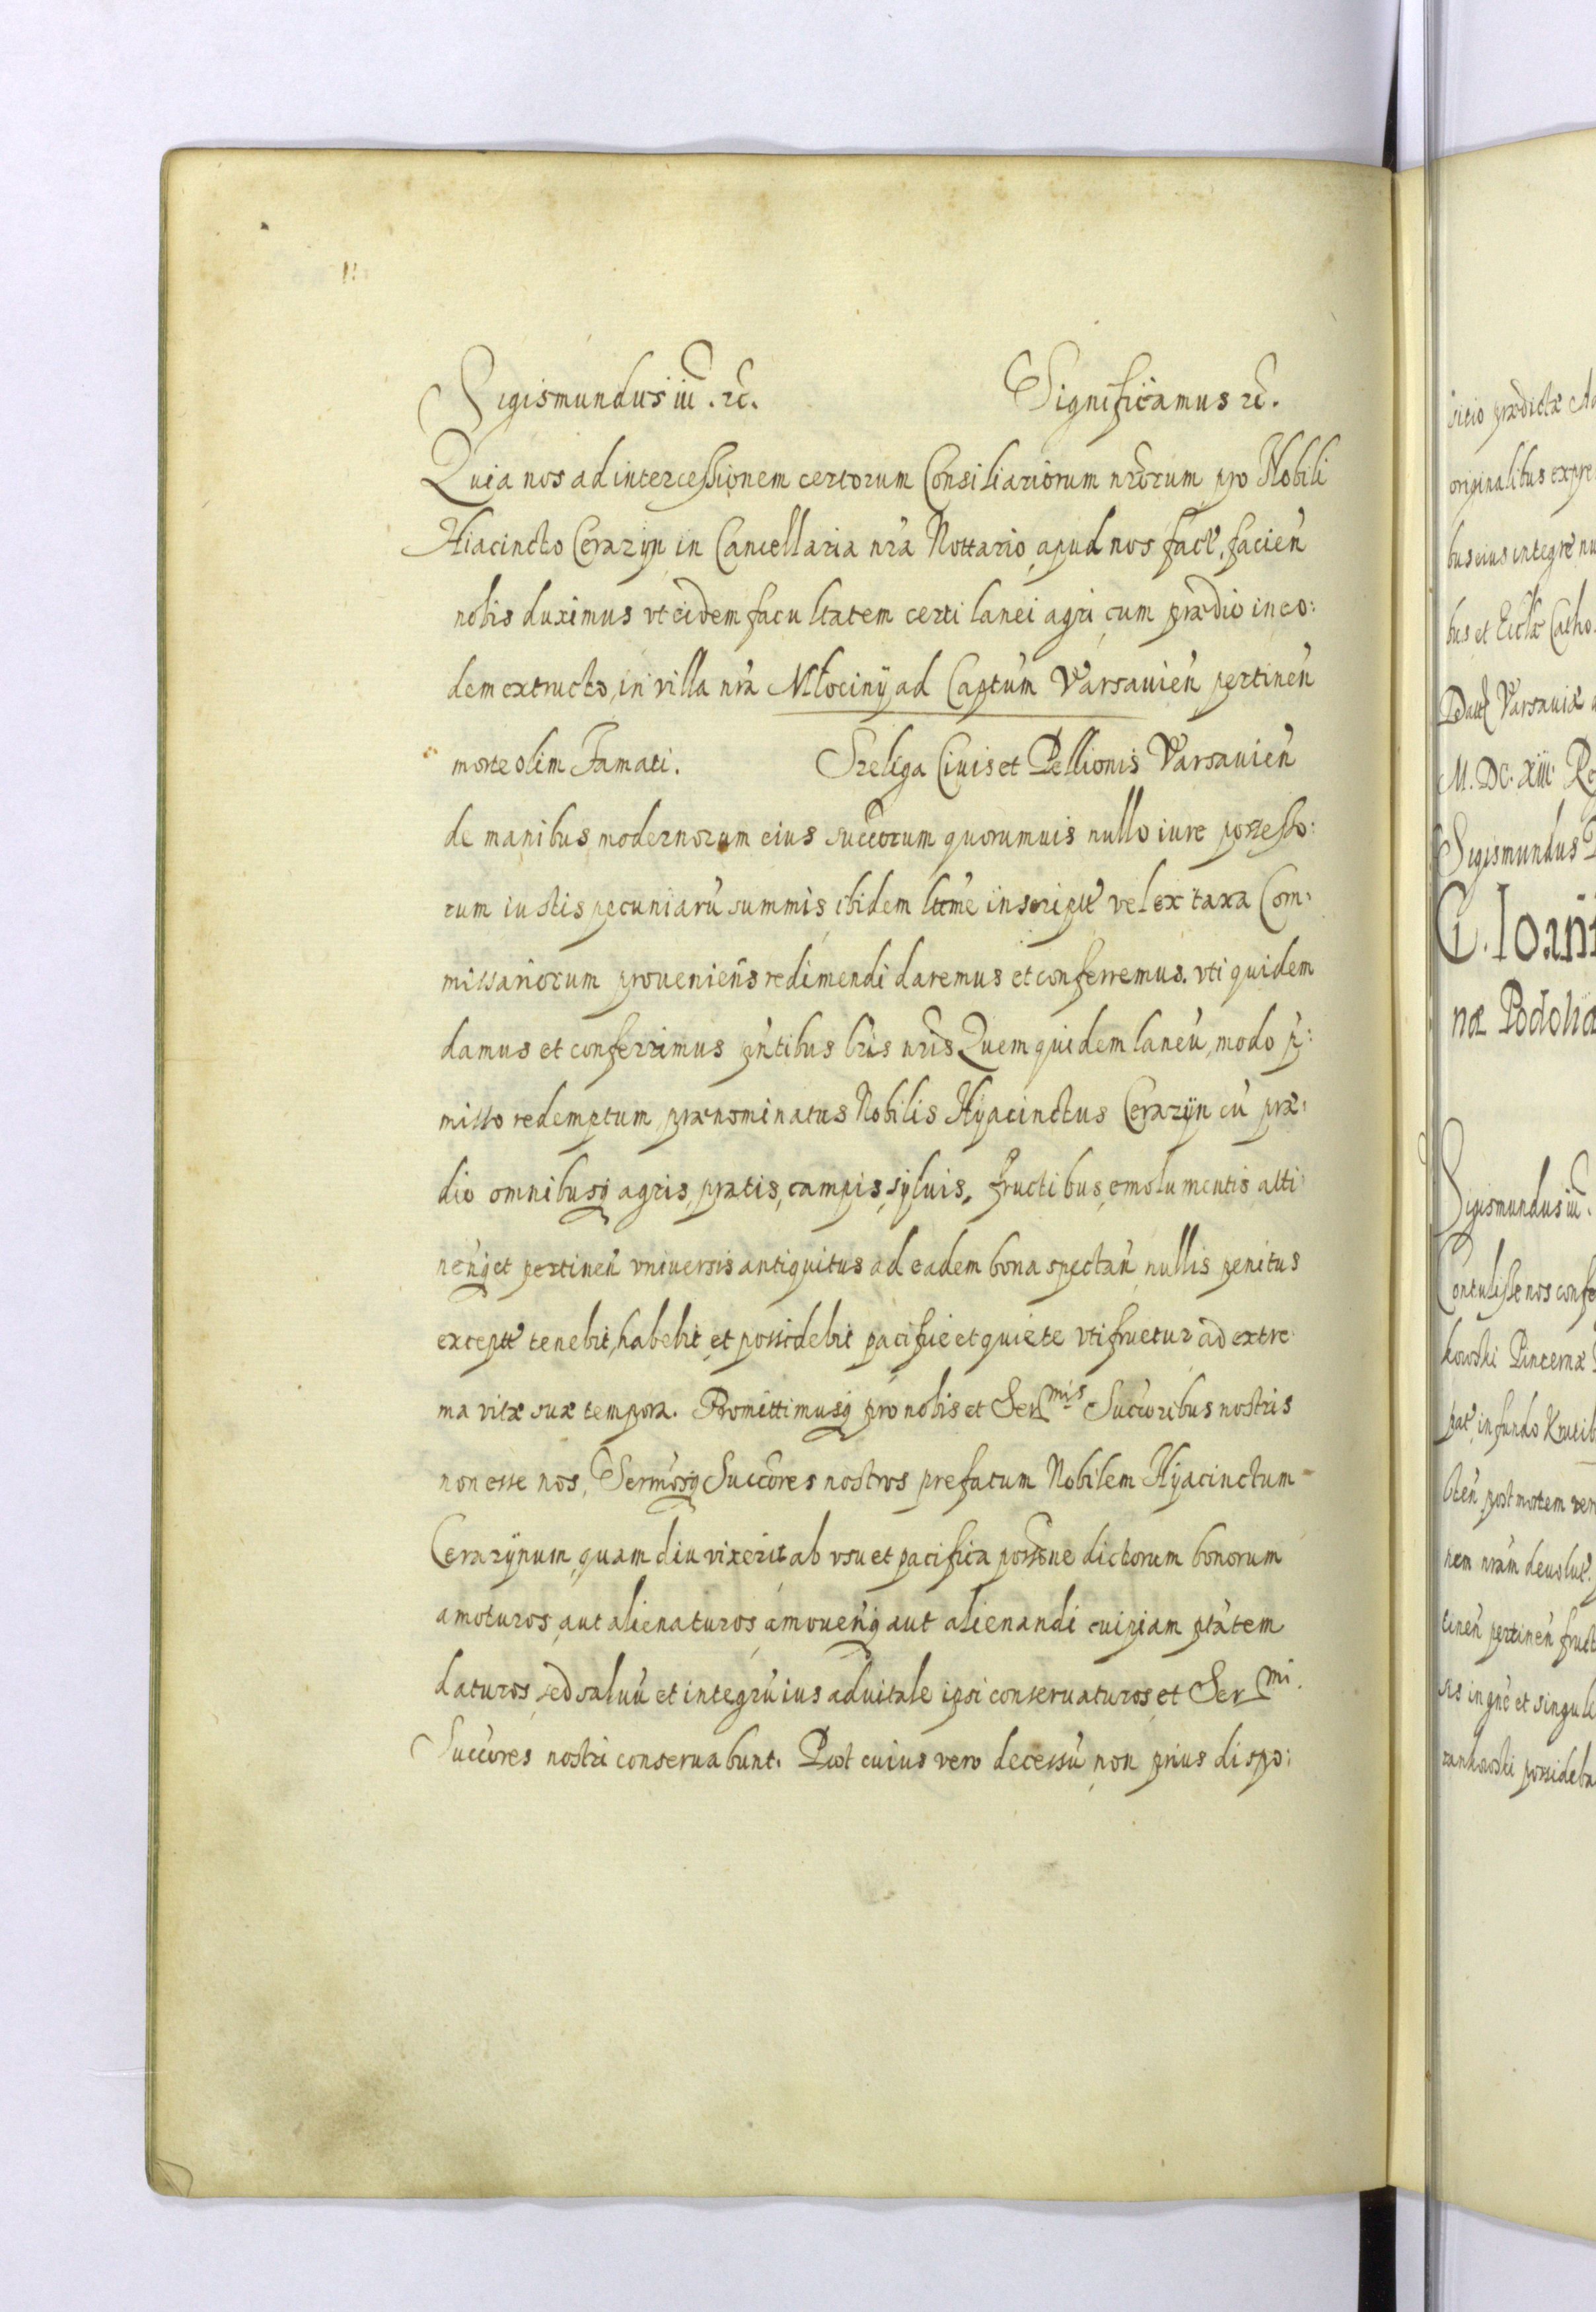 Sigismundus iii. rc. Significamus rc.
Quia nos ad intercessionem certorum Consiliariorum nrorum pro Nobili
Hiacincto Cerazyn in Cancellaria nra Nottario, apud nos fact, facien
nobis duximus vt eidem facultatem certi lanei agri cum prædio in eo:
dem extructo, in villa nra Młociny ad Captum Varsauien pertinen
morte olim Famati. Szeliga Ciuis et Pellionis Varsauien
de manibus modernorum eius succorum quorumuis nullo iure possesso:
rum iustis pecuniaru summis ibidem lttme inscript vel ex taxa Com:
missariorum proueniens redimendi daremus et conferremus. vti quidem
damus et conferrimus pntibus lris nris Quem quidem laneu, modo p:
misso redemptum, prænominatus Nobilis Hyacinctus Cerazyn cu præ:
dio omnibusq agris, pratis, campis, syluis, fructibus, emolumentis atti
nenq et pertinen vniuersis antiquitus ad eadem bona spectan nullis penitus
except tenebit, habebit et possidebit pacifice et quiete vti fruetur ad extre
ma vitæ suæ tempora. Promittimusq pro nobis et Ser mis Succoribus nostris
non esse nos, Sermosq Succores nostros prefatum Nobilem Hyacinctum
Cerazynum, quam diu vixerit ab vsu et pacifica possone dictorum bonorum
amoturos, aut alienaturos, amouenq aut alienandi cuipiam ptatem
daturos, sed saluu et integru ius aduitale ipsi conseruaturos, et Ser mi.
Succores nostri conseruabunt. Post cuius vero decessu non prius dispo:
sitio prædictæ
originalibus
bus eius integre
bus et Eccle
Varsauiæ
M. DC. XIII.
Sigismundus
G.
næ Podoliæ
Sigismundus iii.
Contulisse nos
kowski Pincernæ
in fundo
post mortem
nem nram
tinen pertinen
et
possideba